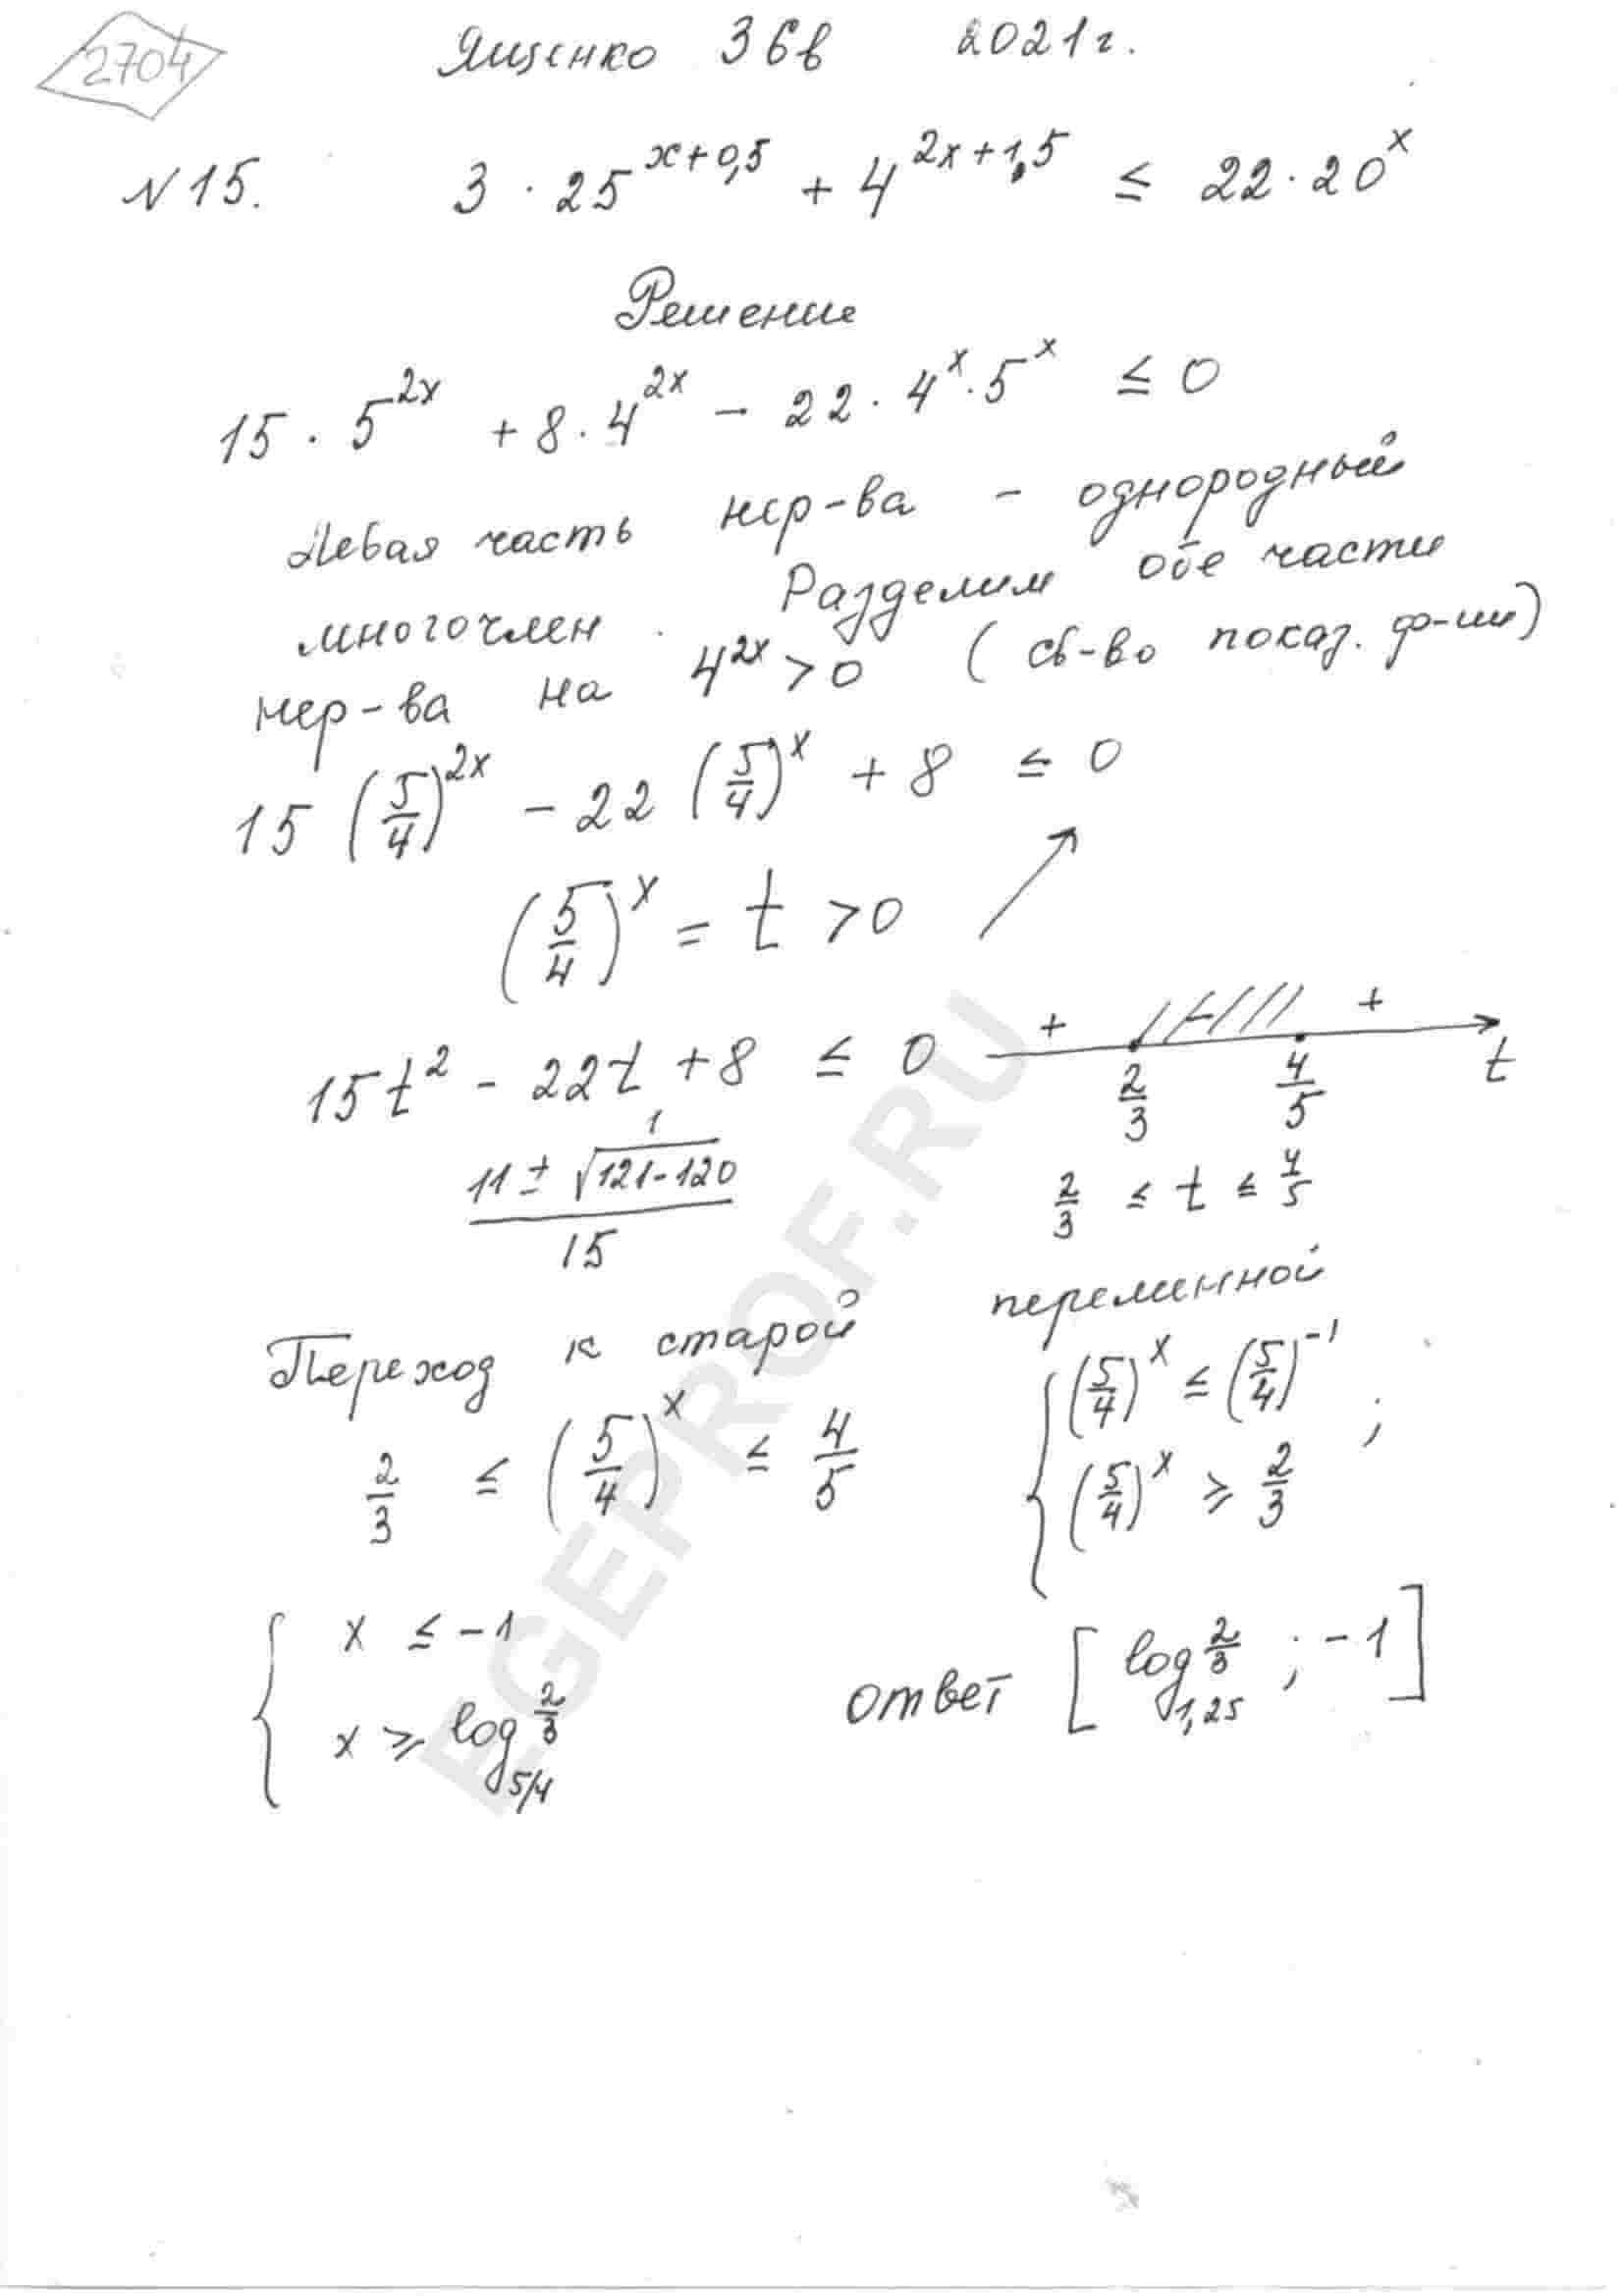 2704
Ященко 36в 2021г.
№15. 3 · 25^{x+0,5} + 4^{2x+1,5} ≤ 22 · 20^x
Решение
15 · 5^{2x} + 8 · 4^{2x} − 22 · 4^x · 5^x ≤ 0
Левая часть нер-ва – однородный
многочлен. Разделим обе части
нер-ва на 4^{2x} > 0 (св-во показ. ф-ии)
15 (5/4)^{2x} − 22 (5/4)^x + 8 ≤ 0
(5/4)^x = t > 0 ↗
15t² − 22t + 8 ≤ 0
+ − +
2/3 4/5 t
1
(11 ± √(121−120))/15
2/3 ≤ t ≤ 4/5
Переход к старой переменной
2/3 ≤ (5/4)^x ≤ 4/5
{ (5/4)^x ≤ (5/4)^{−1}
(5/4)^x ≥ 2/3 ;
{ x ≤ −1
x ≥ log_{5/4} 2/3
ответ [log_{1,25} 2/3 ; −1]
EGEPROF.RU